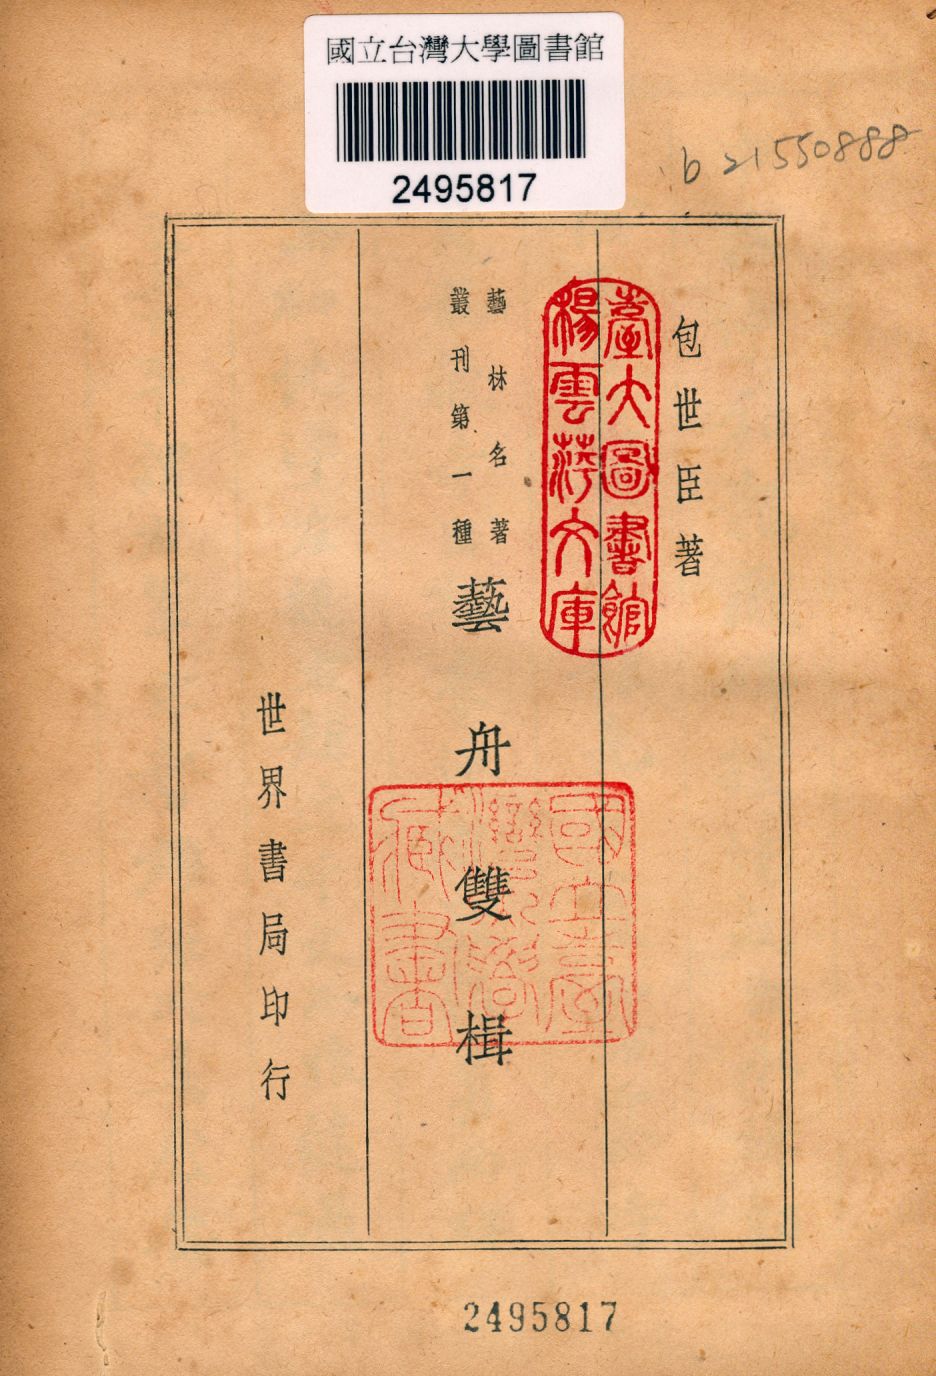 國立台灣大學圖書館
2495817
b 21550888
包世臣著
臺大圖書館
楊雲萍文庫
藝林名著
叢刊第一種
藝舟雙楫
國立臺
灣大學
藏書
世界書局印行
2495817